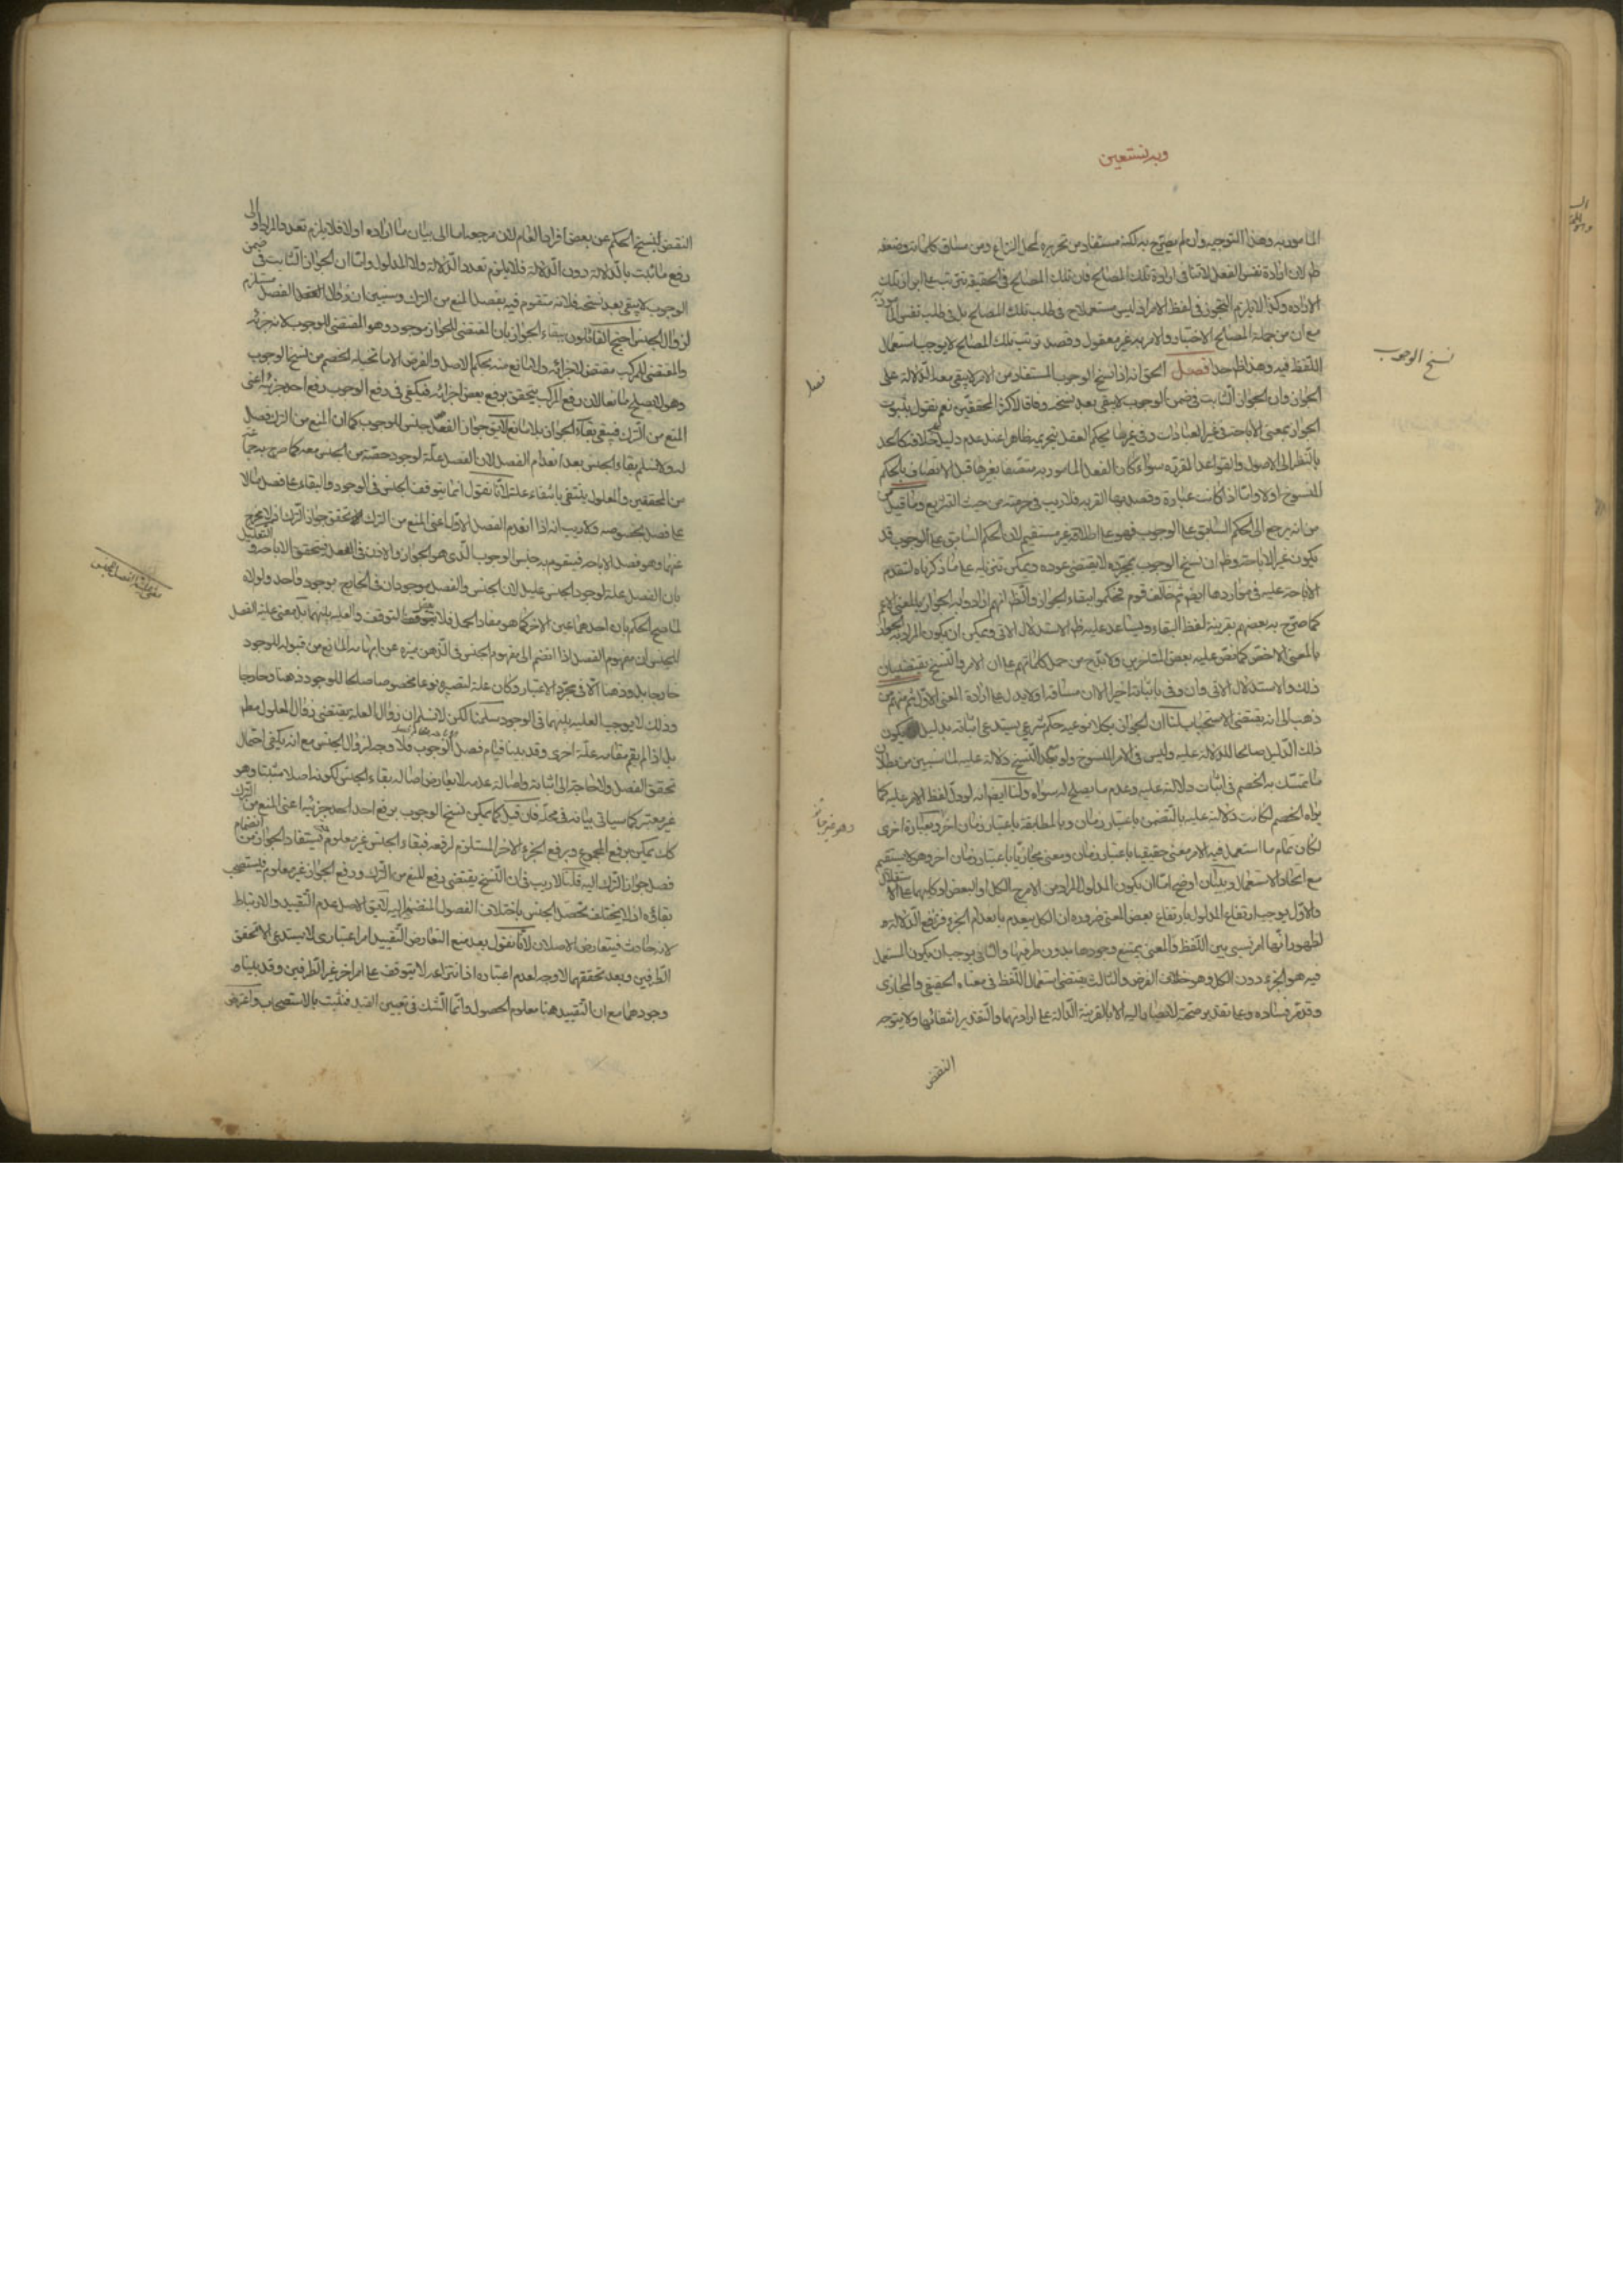 وبه نستعين
المأمور به وهذا التوجيه وان لم يصرّح به لكنه مستفاد من تحريره لمحل النزاع ومن مساق كلماته وضعفه
ظ لان ارادة نفس الفعل لاتنافى ارادة تلك المصالح فان تلك المصالح فى الحقيقة تترتب على
الارادة وكذا لا يلزم التجوز فى لفظ الامر اذ ليس مستعملا ح فى طلب تلك المصالح بل فى طلب نفس المأمور به
مع ان من جملة المصالح الاختبار والامر به غير معقول وقصد ترتب تلك المصالح لا يوجب استعمال
اللفظ فيه وهذا ظ جدا فصل الحق انه اذا نسخ الوجوب المستفاد من الامر لا يبقى معه الدلالة على
الجواز وان الجواز الثابت فى ضمن الوجوب لا يبقى بعد نسخه وفاقا لاكثر المحققين نعم نقول بثبوت
الجواز بمعنى الاباحة فى غير العبادات وفى غير ما يحكم العقل بتحريمه ظاهرا عند عدم دليل
بالنظر الى الاصول والقواعد المقررة سواء كان الفعل المأمور به متصفا بغيرها قبل الاتصاف بالحكم
المنسوخ اولا وامّا اذا كانت عبادة وقصد بها القربة فلا ريب فى حرمته من حيث التشريع وما قيل
من انه يرجع الى الحكم السابق على الوجوب فهو على اطلاقه غير مستقيم لان الحكم السابق على الوجوب قد
يكون غير الاباحة وظ ان نسخ الوجوب بمجرّده لا يقتضى عوده ويمكن تنزيله على ما ذكرناه لتقدم
الاباحة عليه فى مواردها ايض ثم خالف قوم فحكموا ببقاء الجواز والظ انهم ارادوا به الجواز بالمعنى الاعم
كما صرّح به بعضهم بقرينة لفظ البقاء ويساعد عليه ظ الاستدلال الاتى ويمكن ان يكون المراد به الجواز
بالمعنى الاخص كما نصّ عليه بعض المتاخرين ولا بدّ ح من حمل كلماتهم على ان الامر والنسخ يقتضيان
ذلك والاستدلال الاتى وان وفى باثباته اخيرا الا ان مساقه اولا يدل على ارادة المعنى الاول ثم منهم من
ذهب الى انه يقتضى الاستحباب لنا ان الجواز بكلا نوعيه حكم شرعى يستدعى اثباته بدليل يكون
ذلك الدليل صالحا للدلالة عليه وليس فى الامر المنسوخ ولو بعد النسخ دلالة عليه لما سيبين من بطلان
ما تمسّك به الخصم فى اثبات دلالته عليه وعدم ما يصلح له سواه ولنا ايض انه لو دلّ لفظ الامر عليه كما
يراه الخصم لكانت دلالته عليه بالتضمن باعتبار زمان وبالمطابقة باعتبار زمان اخر وبعبارة اخرى
لكان تمام ما استعمل فيه الامر معنى حقيقيا باعتبار زمان ومعنى مجازيا باعتبار زمان اخر وهو لا يستقيم
مع اتحاد الاستعمال وببيان اوضح امّا ان يكون المدلول المراد من الامر ح الكل او البعض او كليهما على الاستقلال
والاول يوجب ارتفاع المدلول بارتفاع بعض المعنى ضرورة ان الكل ينعدم بانعدام الجزء فترتفع الدلالة
لظهور انها امر نسبى بين اللفظ والمعنى يمتنع وجودها بدون طرفيها والثانى يوجب ان يكون المستعمل
فيه هو الجزء دون الكل وهو خلاف الفرض والثالث يقتضى استعمال اللفظ فى معناه الحقيقى والمجازى
وقد مرّ فساده وعلى تقدير صحته لا يصار اليه الا بالقرينة الدالة على ارادتهما والتقدير انتفائها ولا يتوجه
النقض
نسخ الوجوب
وهو غير جائز
النقض بنسخ الحكم عن بعض افراد العام لان مرجعه اما الى بيان ما اراده اولا فلا يلزم تعدد المراد او الى
رفع ما ثبت بالدلالة دون الدلالة فلا يلزم تعدد الدلالة ولا المدلول وامّا ان الجواز الثابت فى ضمن
الوجوب لا يبقى بعد نسخه فلانه متقوم فيه بفصل المنع من الترك وسنبين ان زوال الفصل مستلزم
لزوال الجنس احتج القائلون ببقاء الجواز بان المقتضى للجواز موجود وهو المقتضى للوجوب لانه جزئه
والمقتضى للمركب مقتض لاجزائه ولا مانع منه بحكم الاصل والفرض الا ما تخيله الخصم من نسخ الوجوب
وهو لا يصلح مانعا لان رفع المركب يتحقق برفع بعض اجزائه فيكفى فى رفع الوجوب رفع احد جزئيه اعنى
المنع من الترك فيبقى بقاء الجواز بلا مانع لايق جواز الفعل جنس للوجوب كما ان المنع من الترك فصل
له ولا نسلم بقاء الجنس بعد انعدام الفصل لان الفصل علّة لوجود حصّة من الجنس معه كما صرح به جماعة
من المحققين والمعلول ينتفى بانتفاء علته لانّا نقول انما يتوقف الجنس فى الوجود والبقاء على فصل ما لا
على فصل بخصوصه ولا ريب انه اذا انعدم الفصل الاول اعنى المنع من الترك تحقق جواز الترك اذ لا يخرج
عنهما وهو فصل الاباحة فيتقوم به جنس الوجوب الذى هو الجواز والاذن فى الفعل فيتحقق الاباحة والتعليل
بان الفصل علة لوجود الجنس عليل لان الجنس والفصل موجودان فى الخارج بوجود واحد ولولاه
لما صح الحكم بان احدهما عين الاخر كما هو مفاد الحمل فلا يتعقل التوقف والعلية بينهما بل معنى علية الفصل
للجنس ان مفهوم الفصل اذا انضم الى مفهوم الجنس فى الذهن ميزه عن ابهامه المانع من قبوله للوجود
خارجا بل وذهنا الا فى مجرّد الاعتبار وكان علة لتصيره نوعا مخصوصا صالحا للوجود ذهنا وخارجا
وذلك لا يوجب العلية بينهما فى الوجود سلّمنا لكن لا نسلم ان زوال العلة يقتضى زوال المعلول مطم
بل اذا لم يقم مقامه علّة اخرى وقد بينا قيام فصل الوجوب فلا وجه لزوال الجنس مع انه يكفى احتمال
تحقق الفصل ولا حاجة الى اثباته واصالة عدمه لا يعارض اصالة بقاء الجنس لكونه اصلا مثبتا وهو
غير معتبر كما سياتى بيانه فى محلّه فان قيل كما يمكن نسخ الوجوب برفع احد جزئيه اعنى المنع من الترك
كك يمكن برفع المجموع وبرفع الجزء الاخر المستلزم لرفعه فبقاء الجنس غير معلوم فيستفاد الجواز من انضمام
فصل جواز الترك اليه قلنا لا ريب فى ان النسخ يقتضى رفع المنع من الترك ورفع الجواز غير معلوم فيستصحب
بقاؤه اذ لا يختلف تحصّل الجنس باختلاف الفصول المنضمة اليه لايق الاصل عدم التقييد والارتباط
لانه حادث فيتعارض الاصلان لانّا نقول بعد منع التعارض التقييد امر اعتبارى لا يستدعى الا تحقق
الطرفين وبعد تحققهما لا وجه لعدم اعتباره اذ انتزاعه لا يتوقف على امر اخر غير الطرفين وقد بينا
وجودهما مع ان التقييد هنا معلوم الحصول وانّما الشك فى تعيين القيد فنثبت بالاستصحاب واعترض